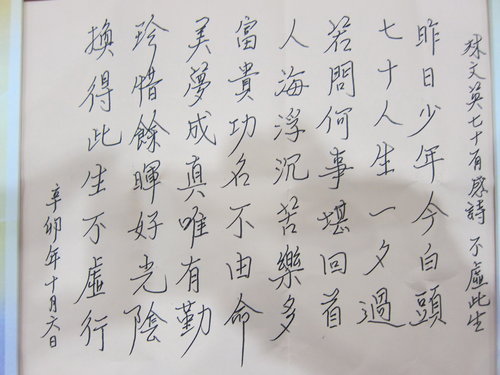 林文英七十有感詩 不虛此生
昨日少年今白頭
七十人生一夕過
若問何事堪回首
人海浮沉苦樂多
富貴功名不由命
美夢成真唯有勤
珍惜餘暉好光陰
換得此生不虛行
辛卯年十月六日